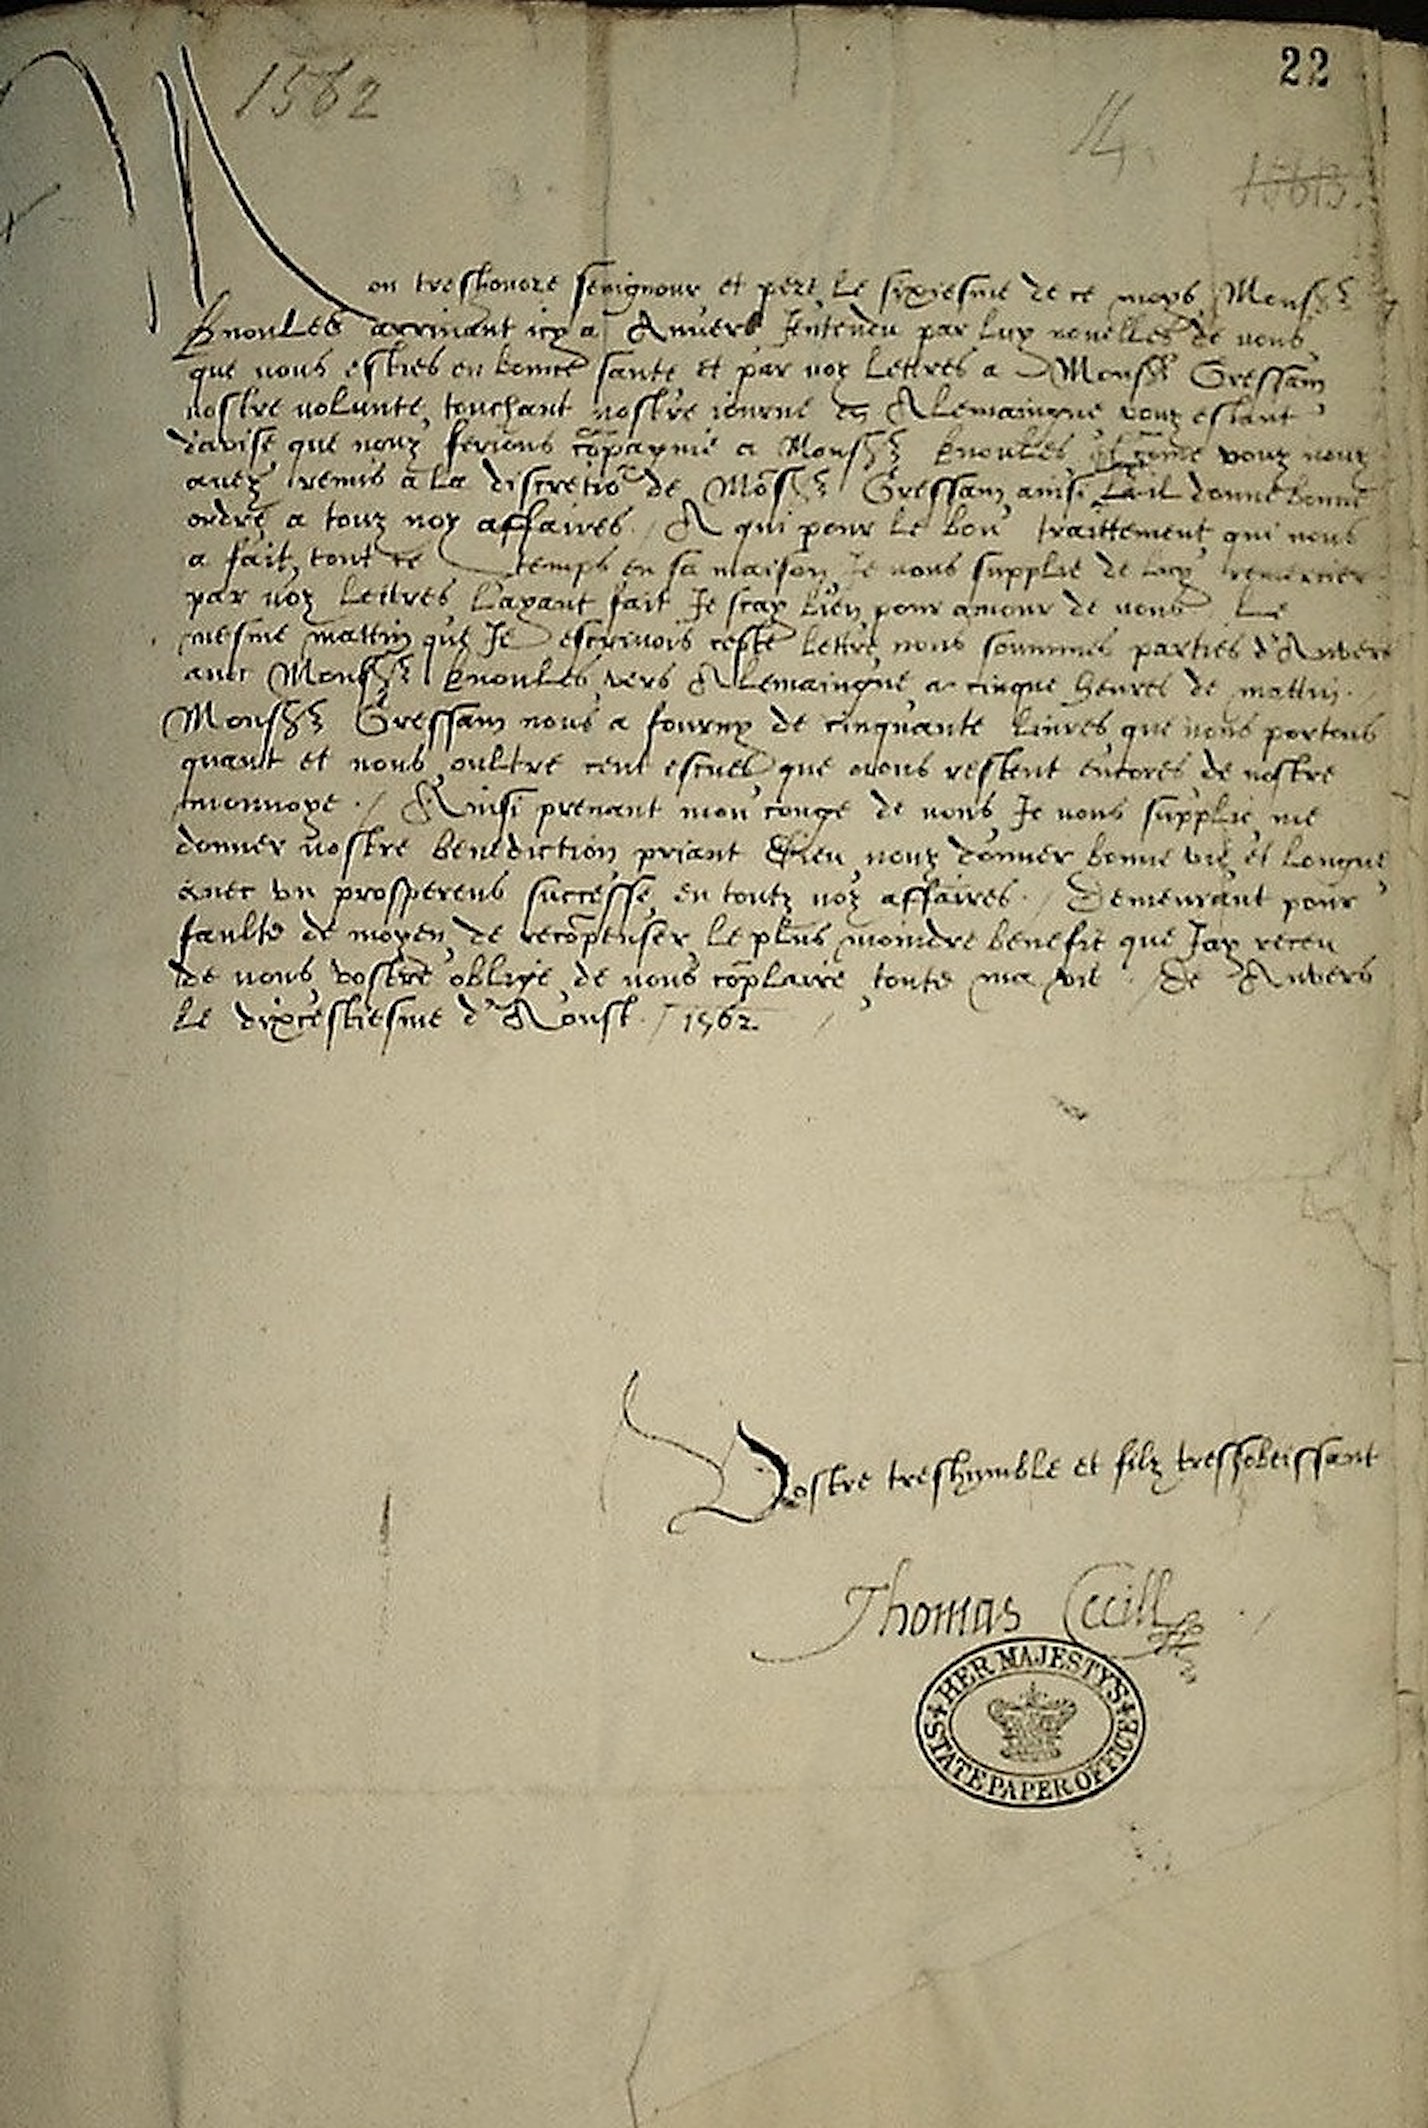 22
1562
14
1563.
Mon treshonore seuignour et pere le sixiesme de ce moys Monsr
Knoules arriuant icy a Anvers Jentendu par luy nouelles de vous
que vous esties en bonne sante et par voz lettres a Monsr Gressam
vostre volunte touchant nostre iourne en Alemaingne vouz estant
d'avise que nouz ferions cōpagnie a Monsr Knoules et cōme vouz nouz
avez remis a la discretiō de Mōsr Gressam ainsi a il donne bonne
ordre a touz noz affaires. / A qui pour le bon traittement qui nous
a fait tout ce temps en sa maison Je vous supplie de luy remercier
par voz lettres l'ayant fait Je scay bien pour amour de vous Le
mesme mattin que Je escrivois ceste lettre nous sommes parties d'Anvers
auec Monsr Knoules vers Alemaingne a cinque heures de mattin.
Monsr Gressam nous a fourny de cinquante liures que nous portons
quant et nous oultre cent escues que nous restent encores de nostre
monnoye. / Ainsi prenant mon conge de vous Je vous supplie me
donner vostre benediction priant Dieu vouz donner bonne vie et longue
avec vn prosperous successe en toutz voz affaires. / Demeurant pour
faulte de moyen de recōpenser le plus moindre benefit que Jay receu
de vous vostre oblige de vous cōplaire toute ma vie. / De Anvers
le dixcestiesme d'Aoust. / 1562.
Vostre treshumble et filz tresobeissant
Thomas Cecill
HER MAJESTY'S
STATE PAPER OFFICE